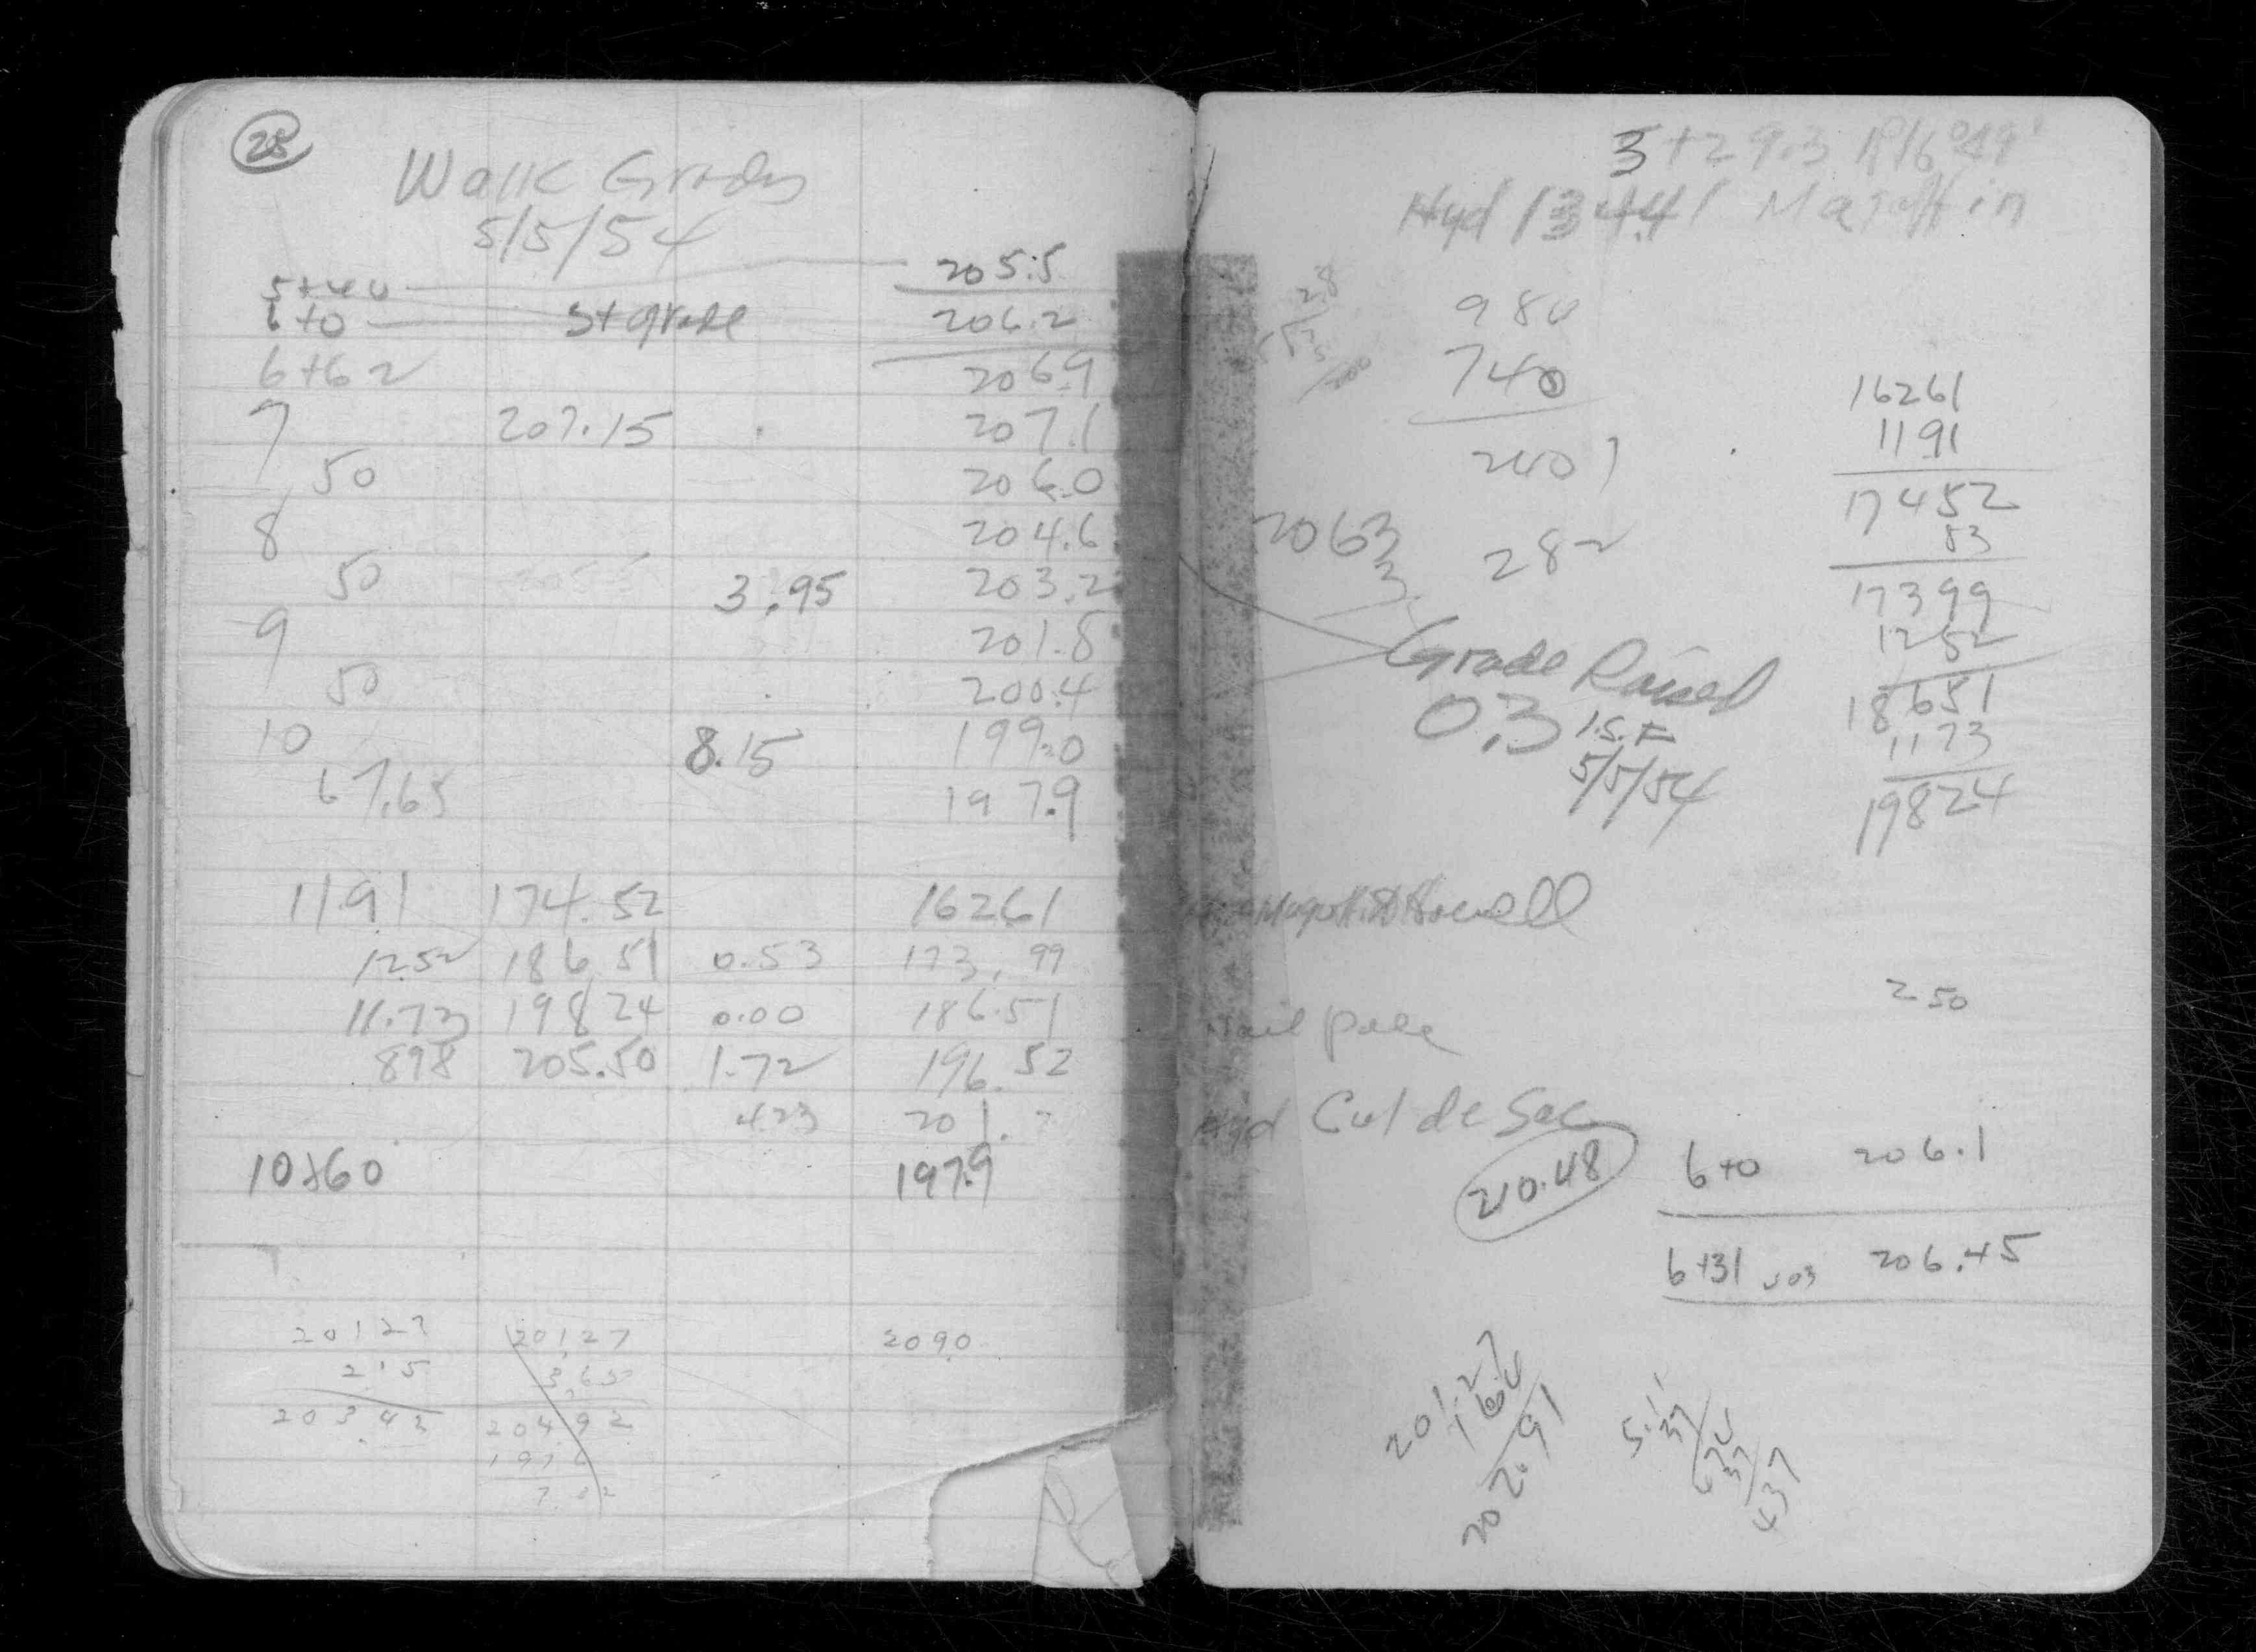 28
Walk Grades
5/5/54
5+40 205.5
6+0 St grade 206.2
6+62 206.9
7 207.15 207.1
50 206.0
8 204.6
50 3.95 203.2
9 201.8
50 200.4
10 8.15 199.0
67.65 197.9
11.91 174.52 162.61
12.52 186.51 0.53 173.99
11.73 198.24 0.00 186.51
898 205.50 1.72 196.52
4.23 201.
10+60 197.9
20127 20127 2090
215 3.65
20343 20492
3+29.3
Hyd 13441 Magoffin
980
740
240
2063
3
282
Grade Raised
0.3 I.S.F
5/5/54
16261
1191
17452
53
17399
1252
18651
1173
19824
Howell
250
Cul de Sac
210.48
6+0 206.1
6+31 206.45
201.27
164
202.91
5.11
37
474
37
437